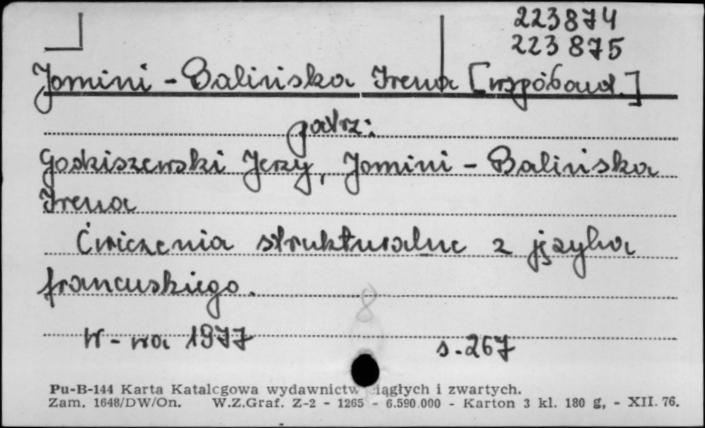 223874
223875
Jomini-Balińska Irena [współaut.]
patrz:
Godziszewski Jerzy, Jomini-Balińska
Irena
Ćwiczenia strukturalne z języka
francuskiego.
W-wa 1977 s. 267
Pu-B-144 Karta Katalogowa wydawnictw ciągłych i zwartych.
Zam. 1648/DW/On. W.Z.Graf. Z-2 - 1265 - 6.590.000 - Karton 3 kl. 180 g, - XII. 76.